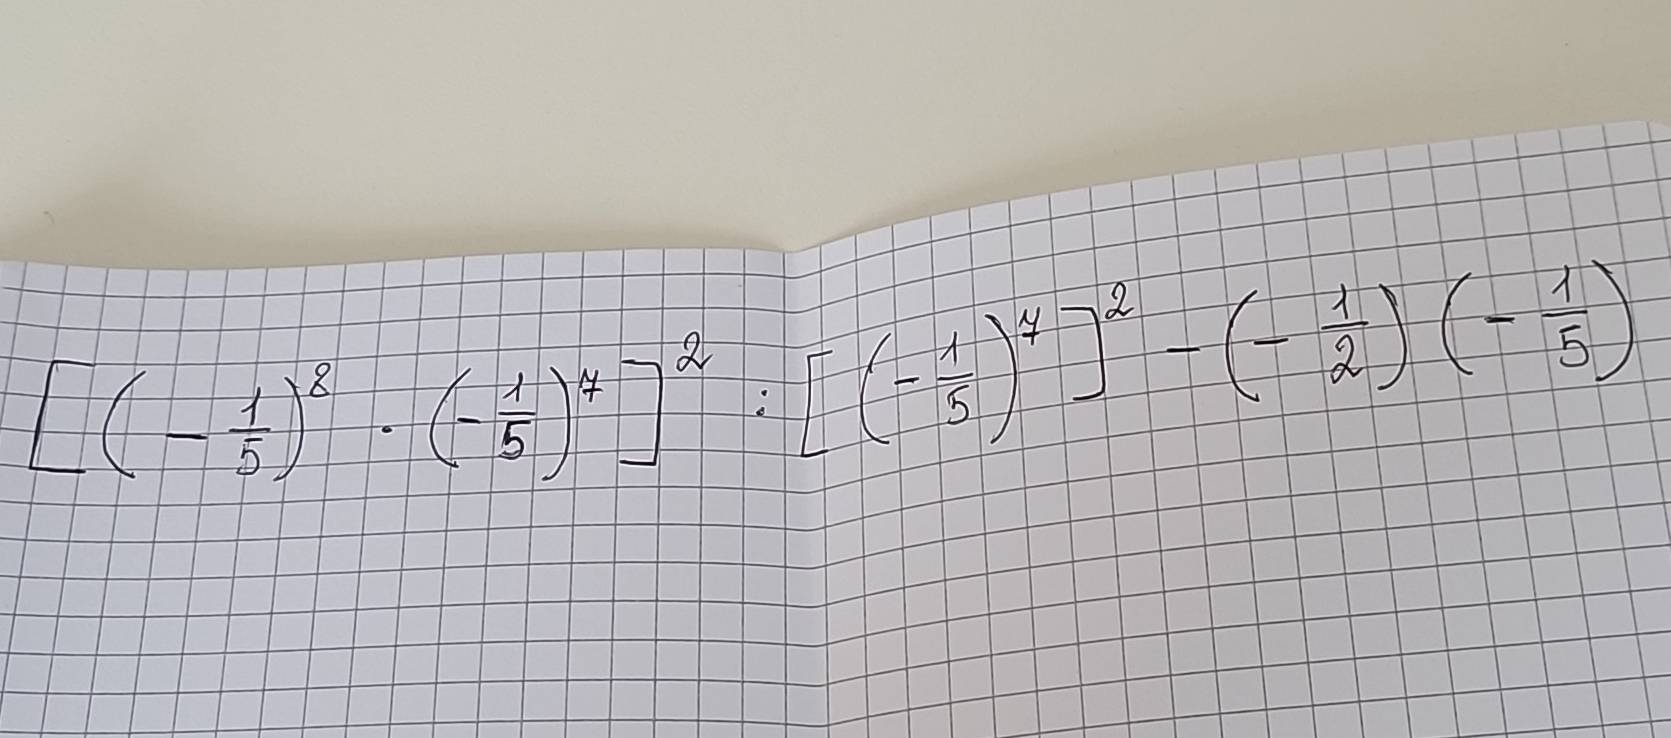 [(-1/5)^8 · (-1/5)^7]^2 : [(-1/5)^7]^2 - (-1/2)(-1/5)